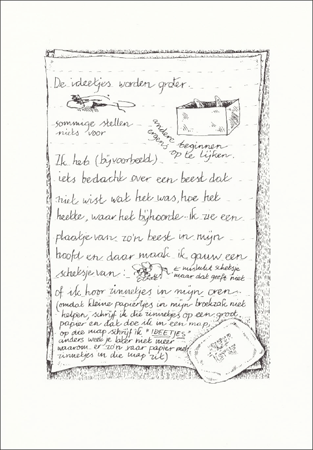 De ideetjes worden groter.
sommige stellen
niets voor
andere beginnen
ergens op te lijken.
Ik heb (bijvoorbeeld)
iets bedacht over een beest dat
niet wist wat het was, hoe het
heette, waar het bijhoorde. Ik zie een
plaatje van zo'n beest in mijn
hoofd en daar maak ik gauw een
schetsje van:
'n mislukt schetsje
maar dat geeft niet
of ik hoor zinnetjes in mijn oren.
(omdat kleine papiertjes in mijn broekzak niet
helpen, schrijf ik die zinnetjes op een groot
papier en dat doe ik in een map,
op die map schrijf ik "IDEETJES"
anders weet je later niet meer
waarom er zo'n raar papier met
zinnetjes in die map zit)